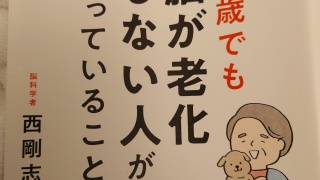 歳でも
脳が老化
しない人が
っていること
脳科学者
西剛志